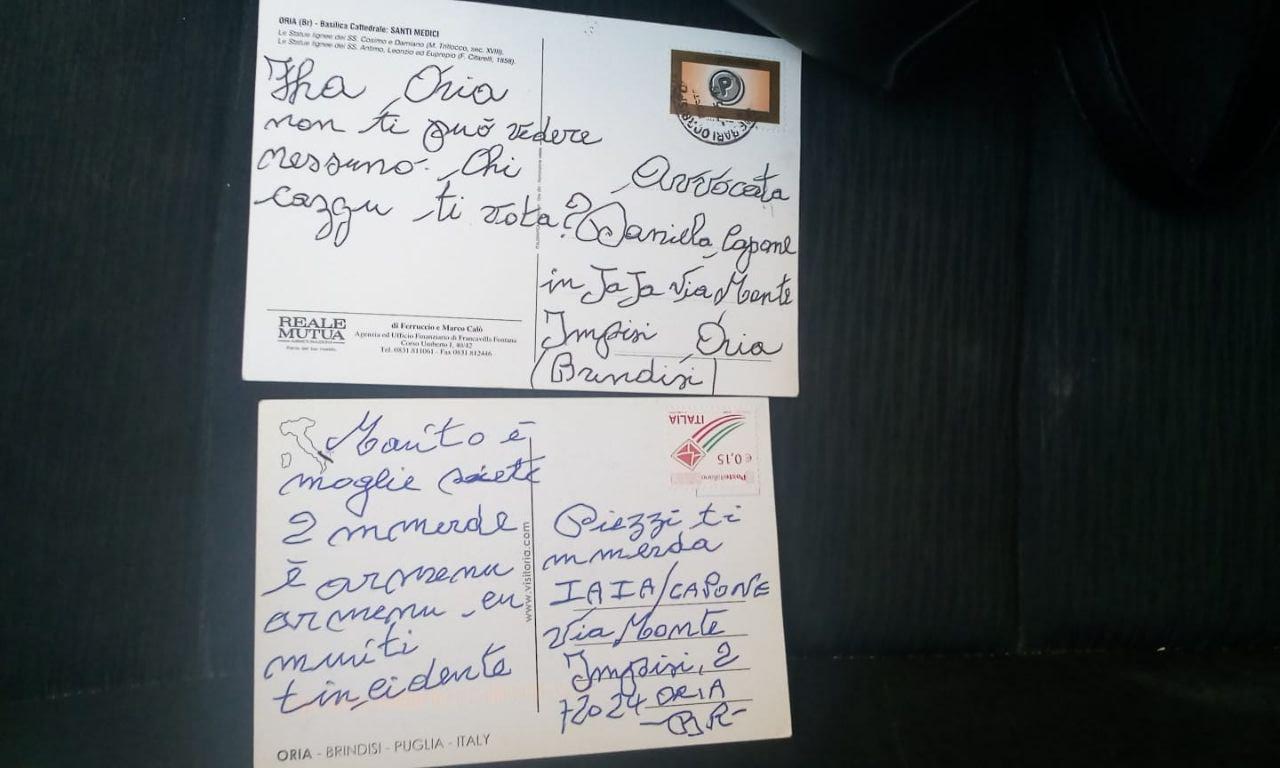 ORIA (Br) - Basilica Cattedrale: SANTI MEDICI
Le Statue lignee dei SS. Cosimo e Damiano (M. Trillocco, sec. XVIII).
Le Statue lignee dei SS. Antimo, Leonzio ed Euprepio (F. Citarelli, 1858).
Jha Oria
non ti può vedere
nessuno. Chi
cazzu ti vota?
Avvocata
Daniela Capone
in JaJa Via Monte
Impisi Oria
(Brindisi)
REALE
MUTUA
di Ferruccio e Marco Calò
Agenzia ed Ufficio Finanziario di Francavilla Fontana
Corso Umberto I, 40/42
Tel. 0831 811061 - Fax 0831 812446
Marito è
moglie siete
2 mmerde
è armenu
armenu cu
muriti
t'incidente
ITALIA
€ 0,15
Posteitaliane
Piezzi ti
mmerda
IAIA/CAPONE
Via Monte
Impisi, 2
72024 ORIA
-BR-
www.visitoria.com
ORIA - BRINDISI - PUGLIA - ITALY